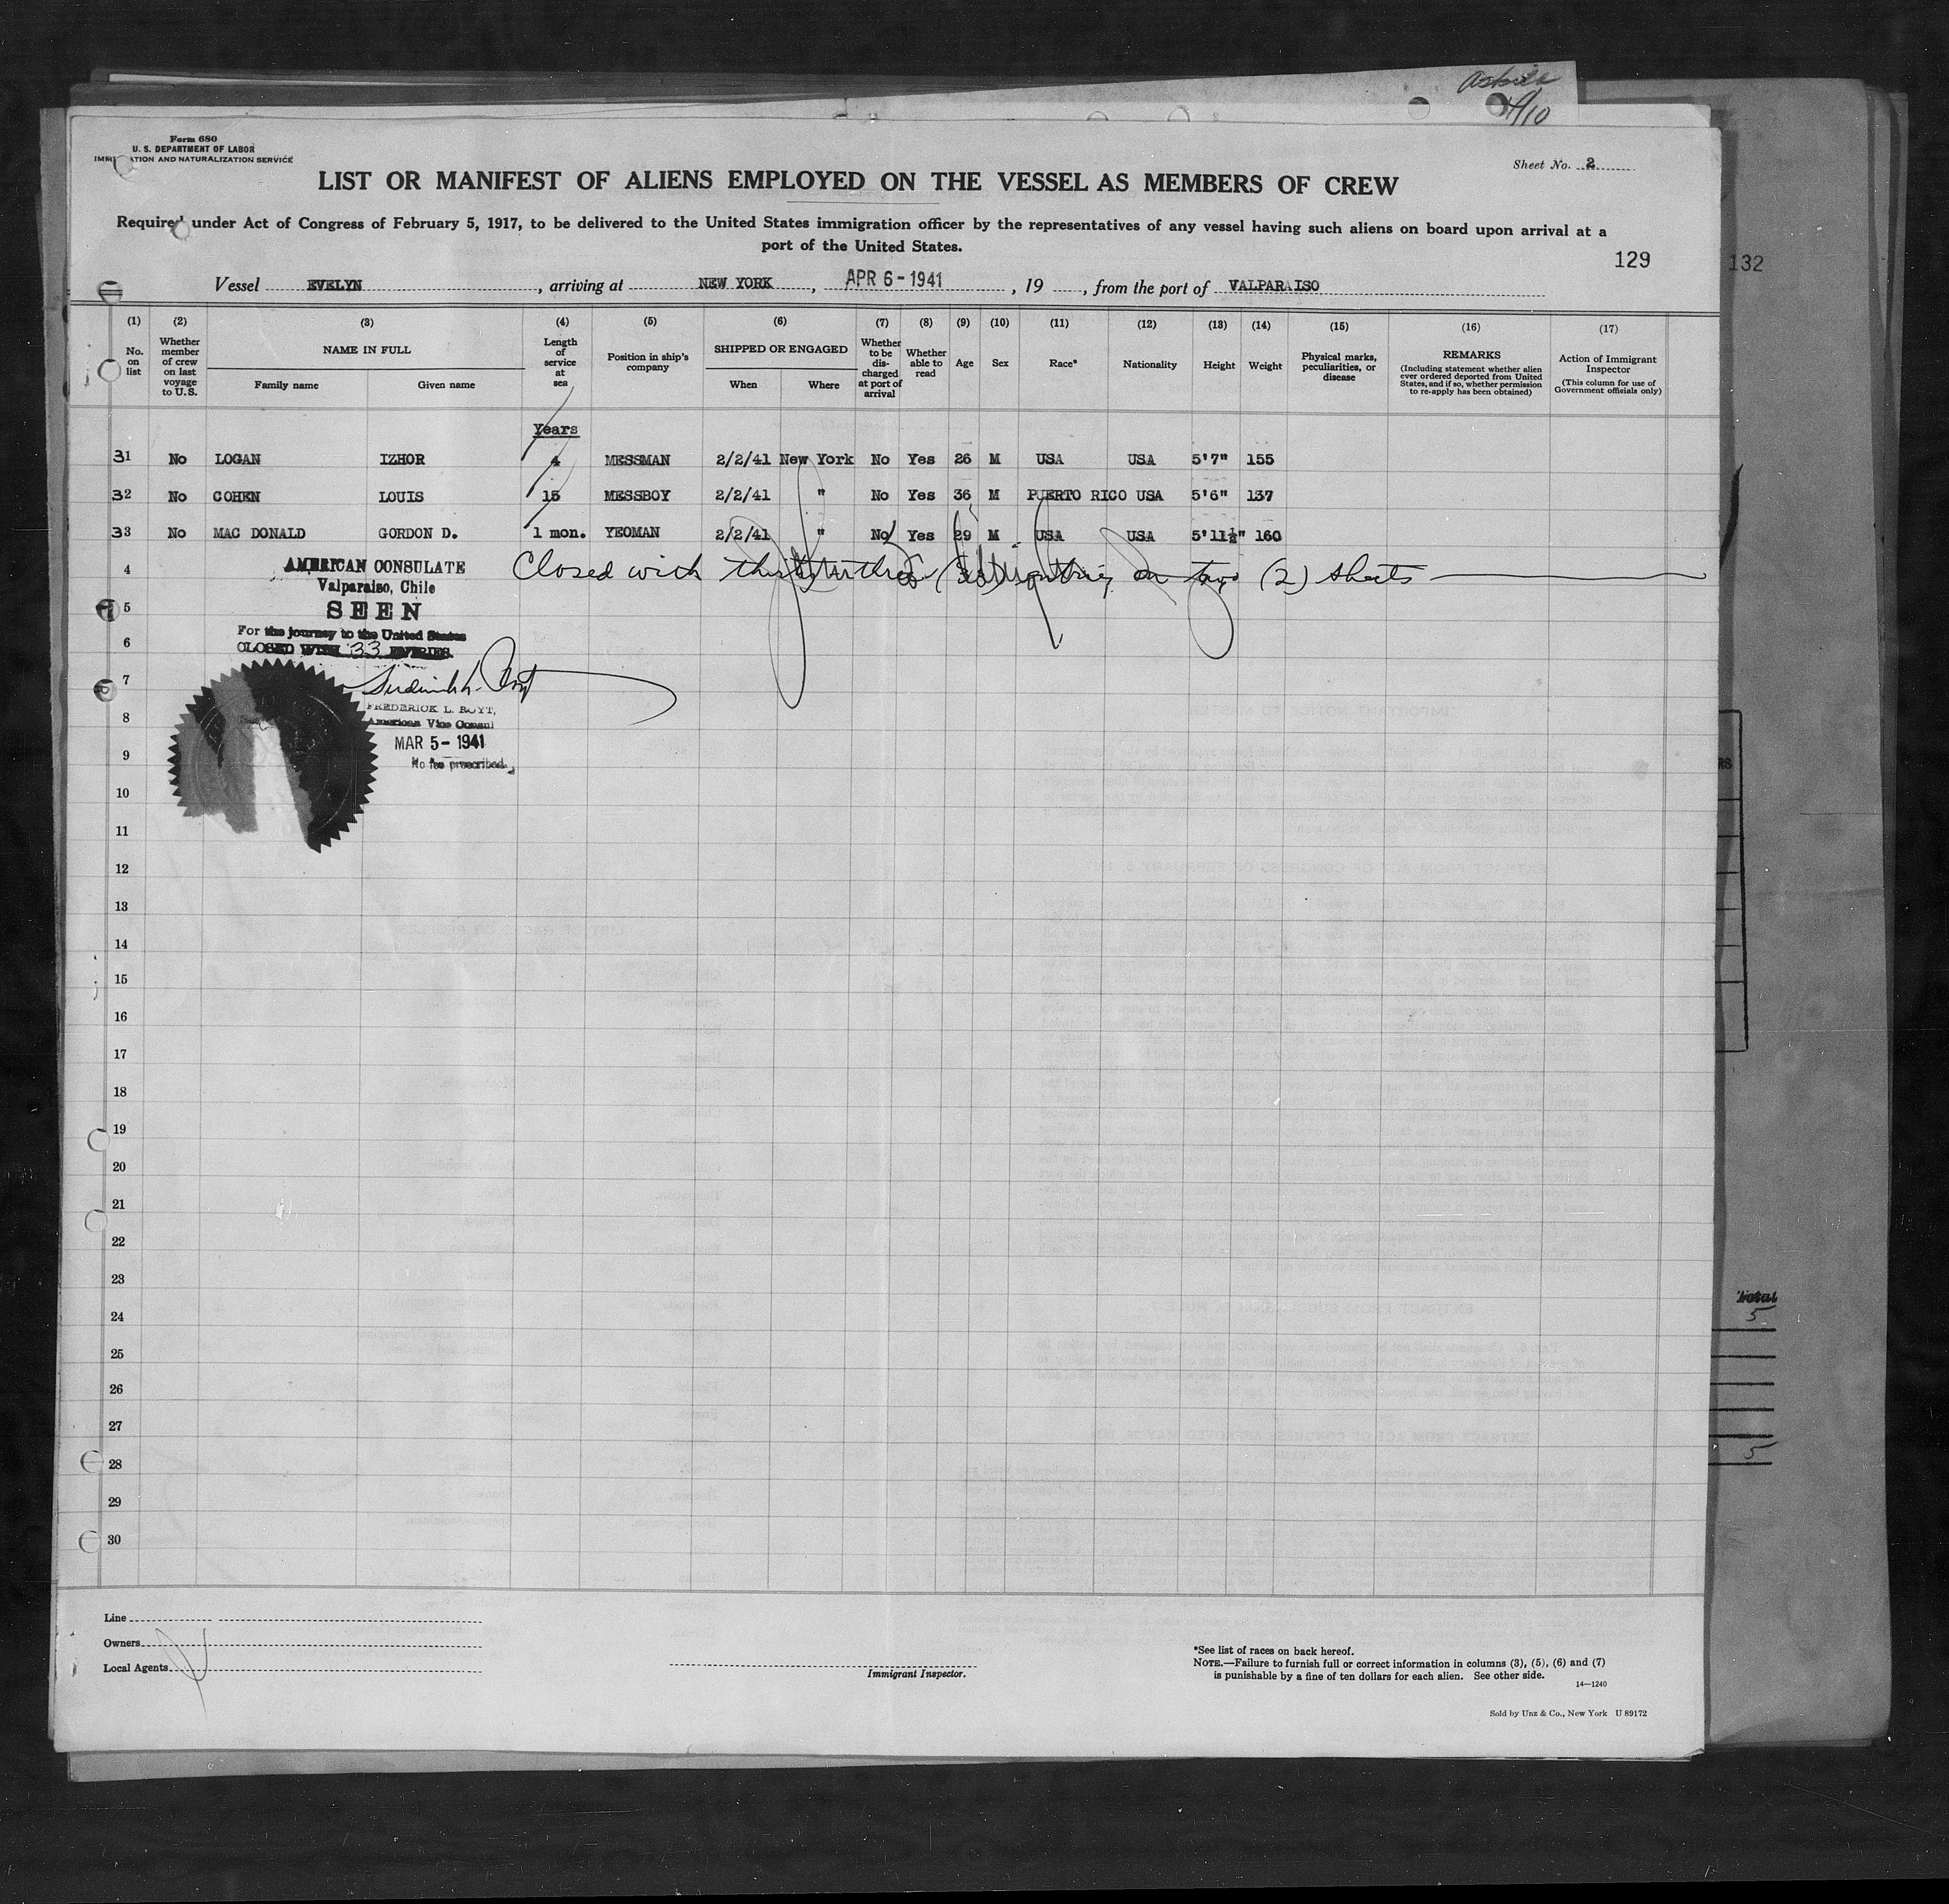 4/10
Form 680
U. S. DEPARTMENT OF LABOR
IMMIGRATION AND NATURALIZATION SERVICE
Sheet No. 2
LIST OR MANIFEST OF ALIENS EMPLOYED ON THE VESSEL AS MEMBERS OF CREW
Required under Act of Congress of February 5, 1917, to be delivered to the United States immigration officer by the representatives of any vessel having such aliens on board upon arrival at a
port of the United States.
129
132
Vessel EVELYN , arriving at NEW YORK , APR 6 - 1941 , 19 , from the port of VALPARAISO
(1) (2) (3) (4) (5) (6) (7) (8) (9) (10) (11) (12) (13) (14) (15) (16) (17)
No. on list
Whether member of crew on last voyage to U.S.
NAME IN FULL
Family name
Given name
Length of service at sea
Position in ship's company
SHIPPED OR ENGAGED
When
Where
Whether to be discharged at port of arrival
Whether able to read
Age
Sex
Race*
Nationality
Height
Weight
Physical marks, peculiarities, or disease
REMARKS
(Including statement whether alien ever ordered deported from United States, and if so, whether permission to re-apply has been obtained)
Action of Immigrant Inspector
(This column for use of Government officials only)
Years
31 No LOGAN IZHOR 4 MESSMAN 2/2/41 New York No Yes 26 M USA USA 5'7" 155
32 No COHEN LOUIS 15 MESSBOY 2/2/41 " No Yes 36 M PUERTO RICO USA 5'6" 137
33 No MAC DONALD GORDON D. 1 mon. YEOMAN 2/2/41 " No Yes 29 M USA USA 5'11½" 160
4 Closed with thirty three (33) entries on two (2) sheets
AMERICAN CONSULATE
Valparaiso, Chile
5 SEEN
For the journey to the United States
6 CLOSED WITH 33 ENTRIES
7
FREDERICK L. ROYT,
8 American Vice Consul
MAR 5 - 1941
9 No fee prescribed.
10
11
12
13
14
15
16
17
18
19
20
21
22
23
24
25
26
27
28
29
30
Total
5
5
Line
Owners
Local Agents
Immigrant Inspector.
*See list of races on back hereof.
NOTE.—Failure to furnish full or correct information in columns (3), (5), (6) and (7)
is punishable by a fine of ten dollars for each alien. See other side.
14—1240
Sold by Unz & Co., New York U 89172